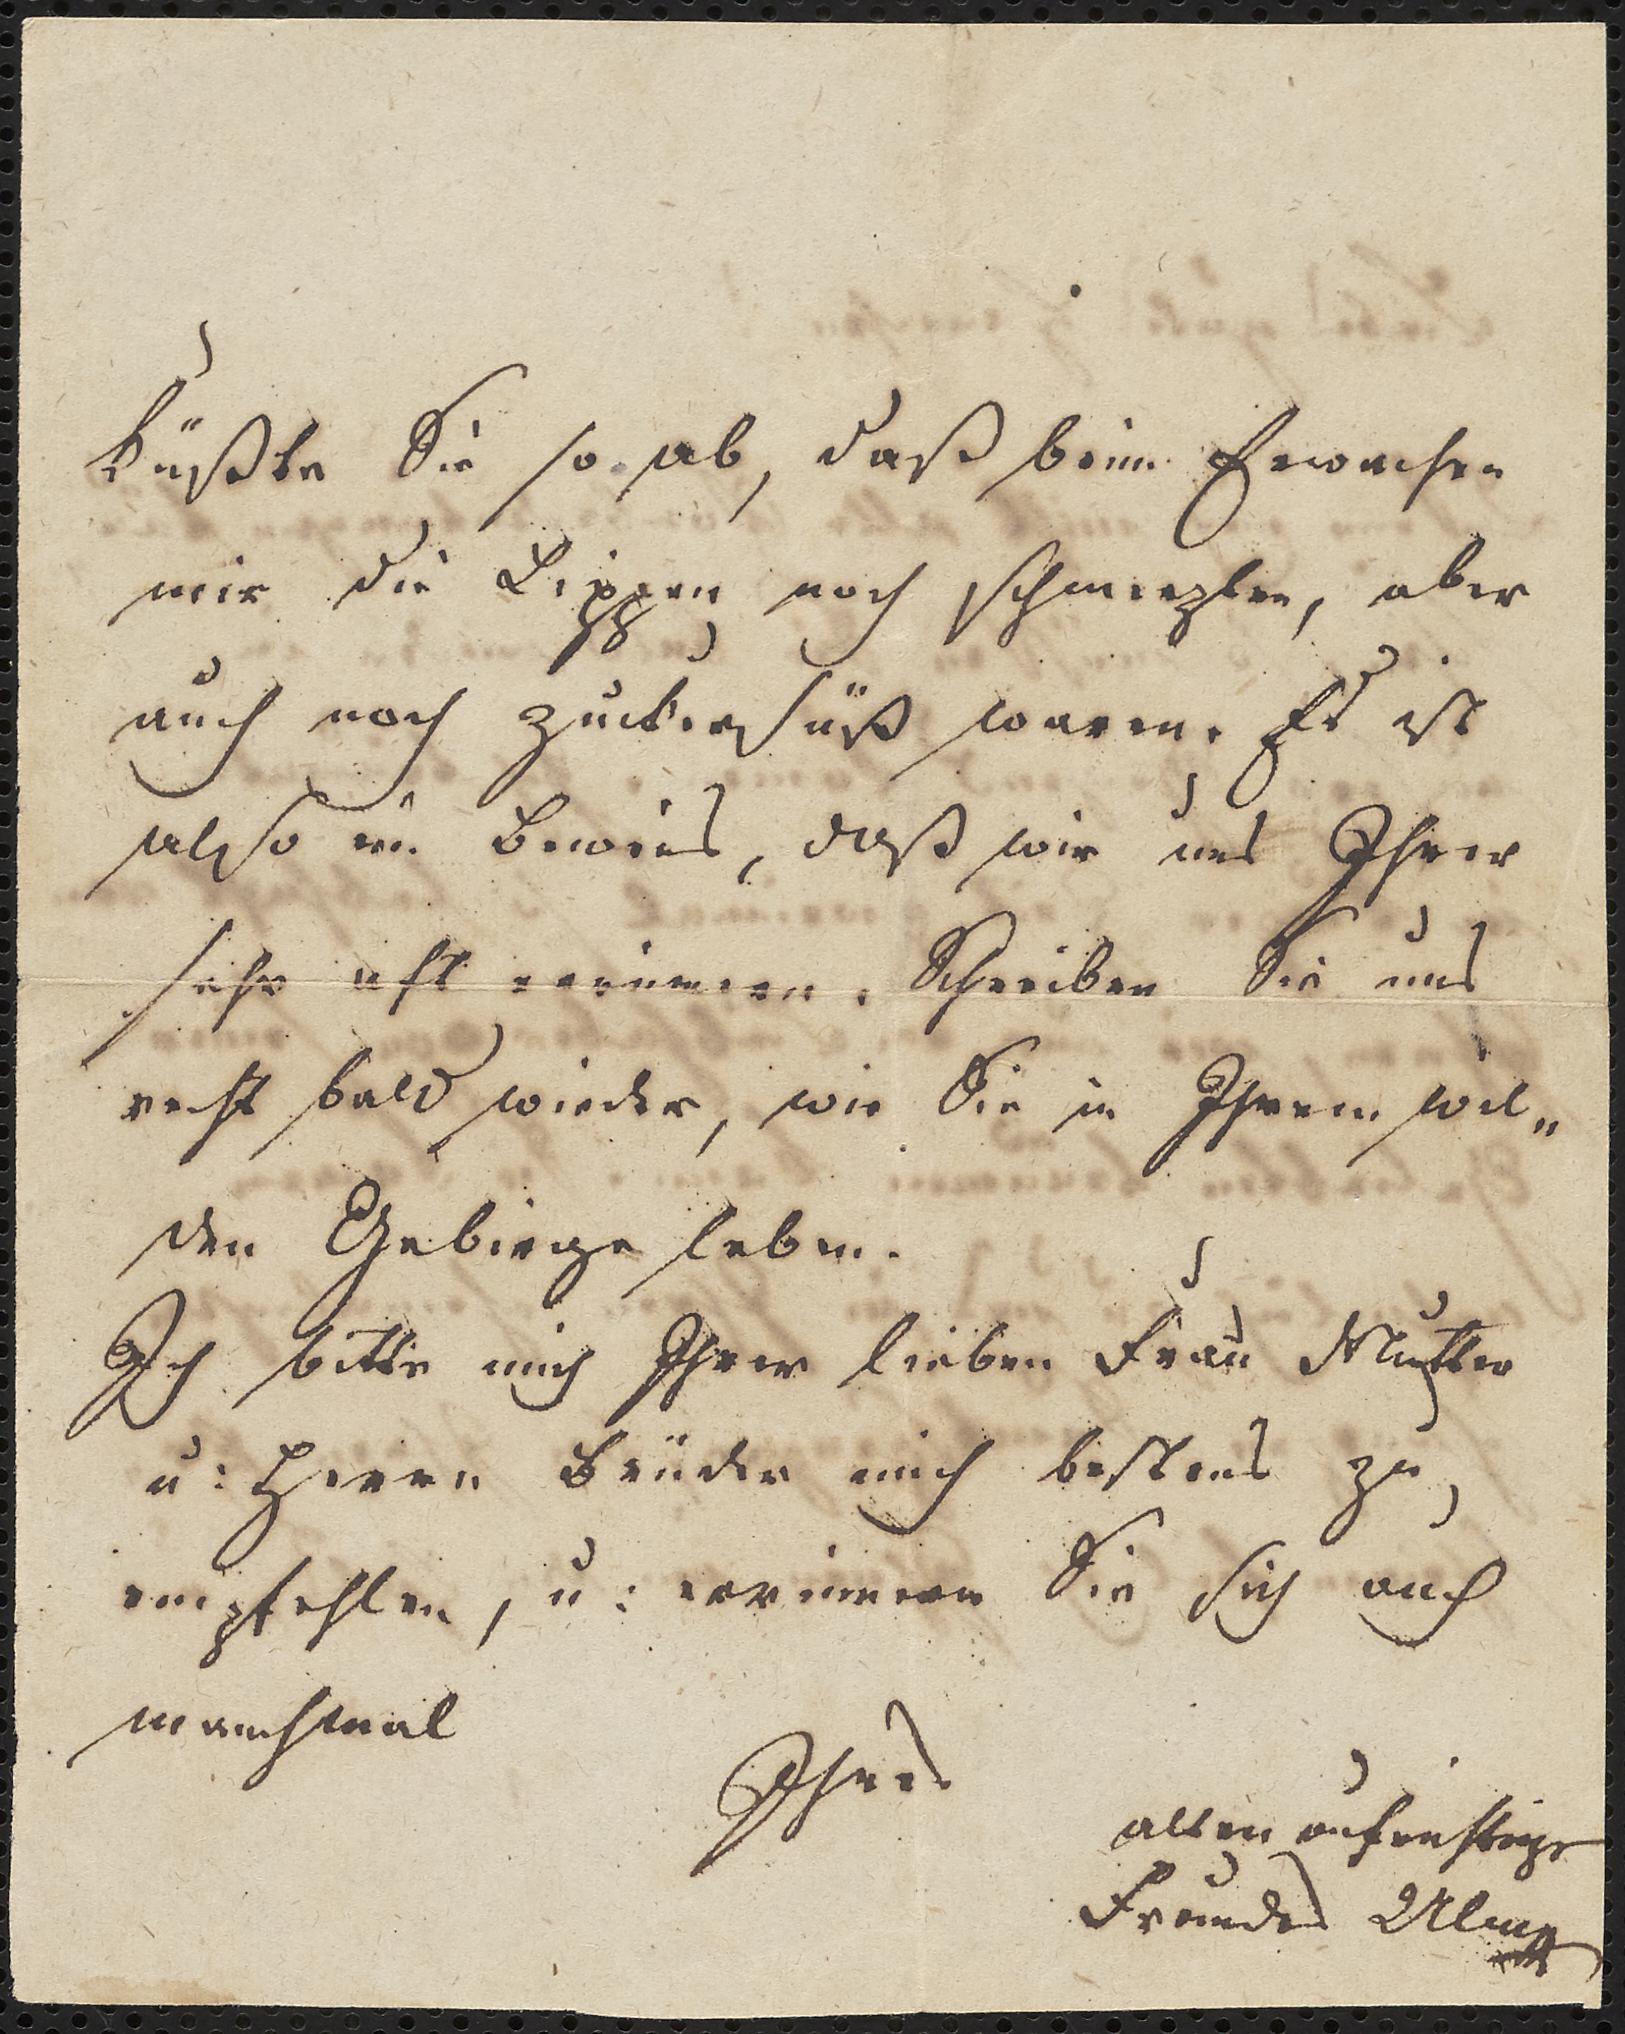 küßte Sie so ab, daß beim Erwachen
mir die Lippen noch schmerzten, aber
auch noch zuckersüß waren. Es ist
also ein Beweis, daß wir uns Ihrer
sehr oft errinnern. Schreiben Sie uns
recht bald wieder, wie Sie in Ihrem wil„
den Gebirge leben.
Ich bitte mich Ihrer lieben Frau Mutter
u: Herrn Bruder mich bestens zu
empfehlen, u: errinnern Sie sich auch
manchmal
Ihres
alten aufrichtigen
Freundes